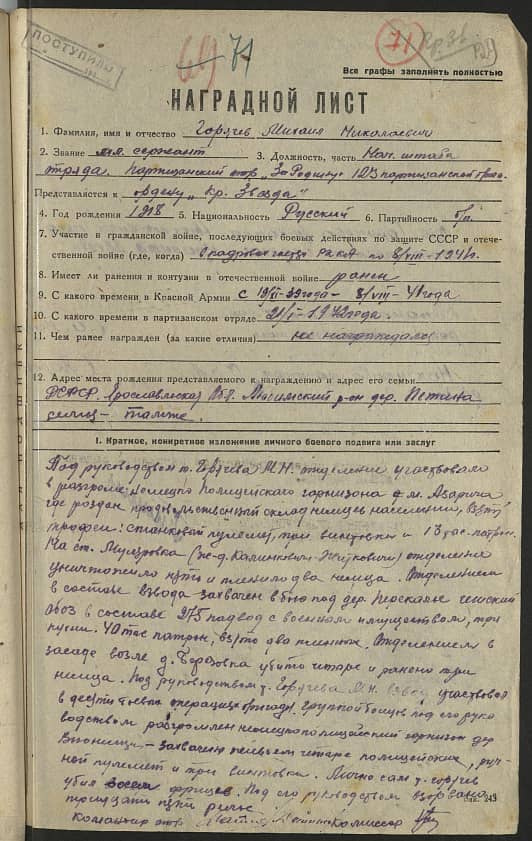 ПОСТУПИЛО
71
71
Все графы заполнять полностью
НАГРАДНОЙ ЛИСТ
1. Фамилия, имя и отчество Горячев Михаил Николаевич
2. Звание мл. сержант 3. Должность, часть Нач. штаба
отряда. Партизанский отр. „За Родину" 123 партизанской бриг.
Представляется к ордену „Кр. Звезда"
4. Год рождения 1918 5. Национальность Русский 6. Партийность б/п
7. Участие в гражданской войне, последующих боевых действиях по защите СССР и отече-
ственной войне (где, когда) В кадровых частях РККА по 8/VIII-1941г.
8. Имеет ли ранения и контузии в отечественной войне ранен
9. С какого времени в Красной Армии С 39 года - 8/VIII-41 года
10. С какого времени в партизанском отряде 21/I-1942 года.
11. Чем ранее награжден (за какие отличия) не награждался
12. Адрес места рождения представляемого к награждению и адрес его семьи
РСФСР Ярославская обл. р-он дер.
семья - также.
I. Краткое, конкретное изложение личного боевого подвига или заслуг
Под руководством т. Горячева М.Н. отделение участвовало
в разгроме немецко полицейского гарнизона в м. Азаричи
где роздан продовольственный склад немцев населению, взяты
трофеи: станковый пулемет, три винтовки и 13 тыс. патрон.
На ст. Муляровка (ж-д. Калинковичи-Житковичи) отделение
уничтожило путь и пленило два немца. Отделением
в составе взвода захвачен в бою под дер. чешский
обоз в составе 275 подвод с военным имуществом, три
пушки. 40 тыс патрон, взято два пленных. Отделением в
засаде возле д. Березовка убито четыре и ранено три
немца. Под руководством т. Горячева М.Н. взвод участвовал
в десяти боевых операциях бригады. Группой бойцов под его руко
водством разгромлен немецкополицейский гарнизон дер
- захвачено пленными четыре полицейских, руч-
ной пулемет и три винтовки. Лично сам т. Горячев
убил восем фрицев. Под его руководством взорвано
тридцати пути рельс.
Командир отр. Комиссар